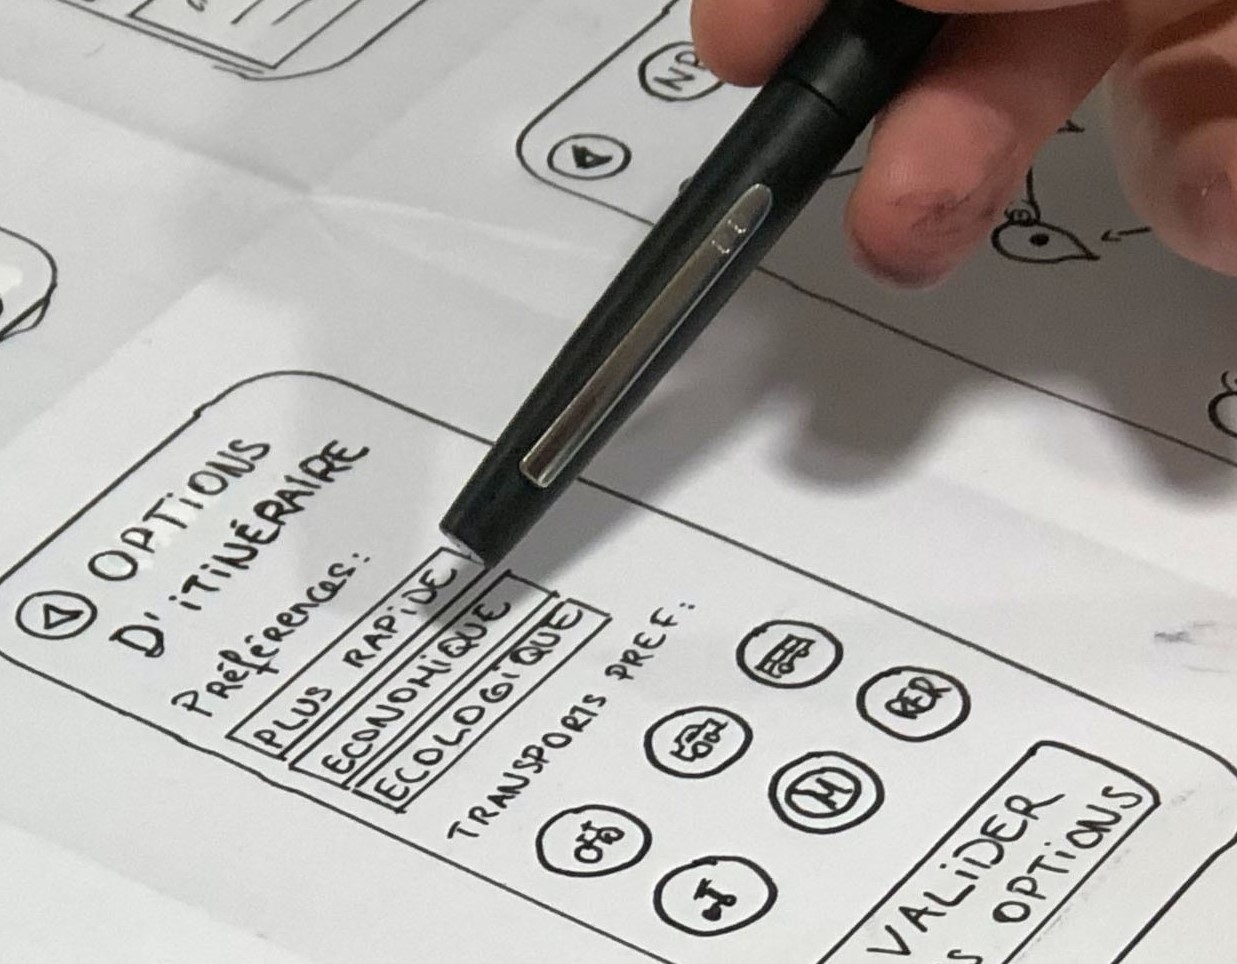 OPTIONS
D'ITINÉRAIRE
Préférences:
PLUS RAPIDE
ECONOMIQUE
ECOLOGIQUE
TRANSPORTS PREF:
RER
M
VALIDER
OPTIONS